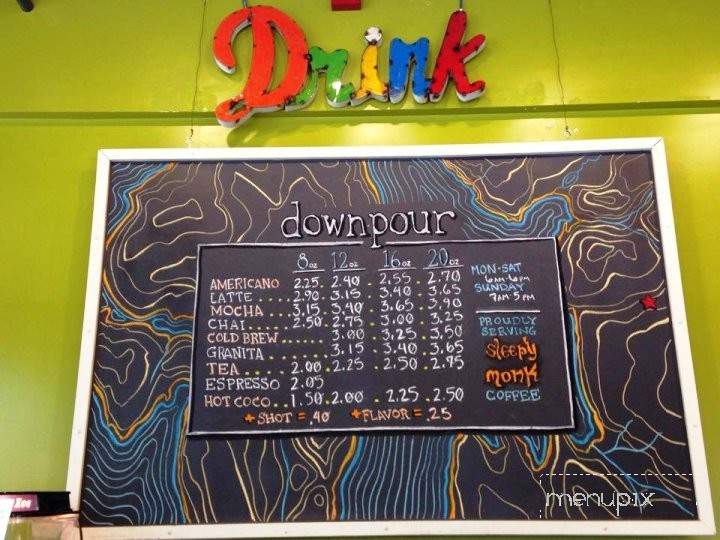 Drink
downpour
8oz 12oz 16oz 20oz
AMERICANO 2.25 . 2.40 . 2.55 . 2.70
LATTE .... 2.90 . 3.15 . 3.40 . 3.65
MOCHA .... 3.15 . 3.40 . 3.65 . 3.90
CHAI ..... 2.50 . 2.75 . 3.00 . 3.25
COLD BREW ...... 3.00 . 3.25 . 3.50
GRANITA ........ 3.15 . 3.40 . 3.65
TEA ..... 2.00 . 2.25 . 2.50 . 2.75
ESPRESSO 2.05
HOT COCO .. 1.50 . 2.00 . 2.25 . 2.50
+ SHOT = .40 + FLAVOR = .25
MON-SAT
6AM-6PM
SUNDAY
7AM-5PM
PROUDLY
SERVING
sleepy
monk
COFFEE
menupix